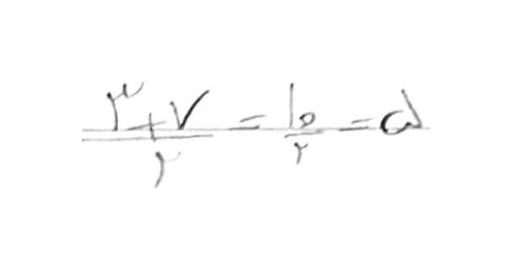 (۳+۷)/۲ = ۱۰/۲ = ۵